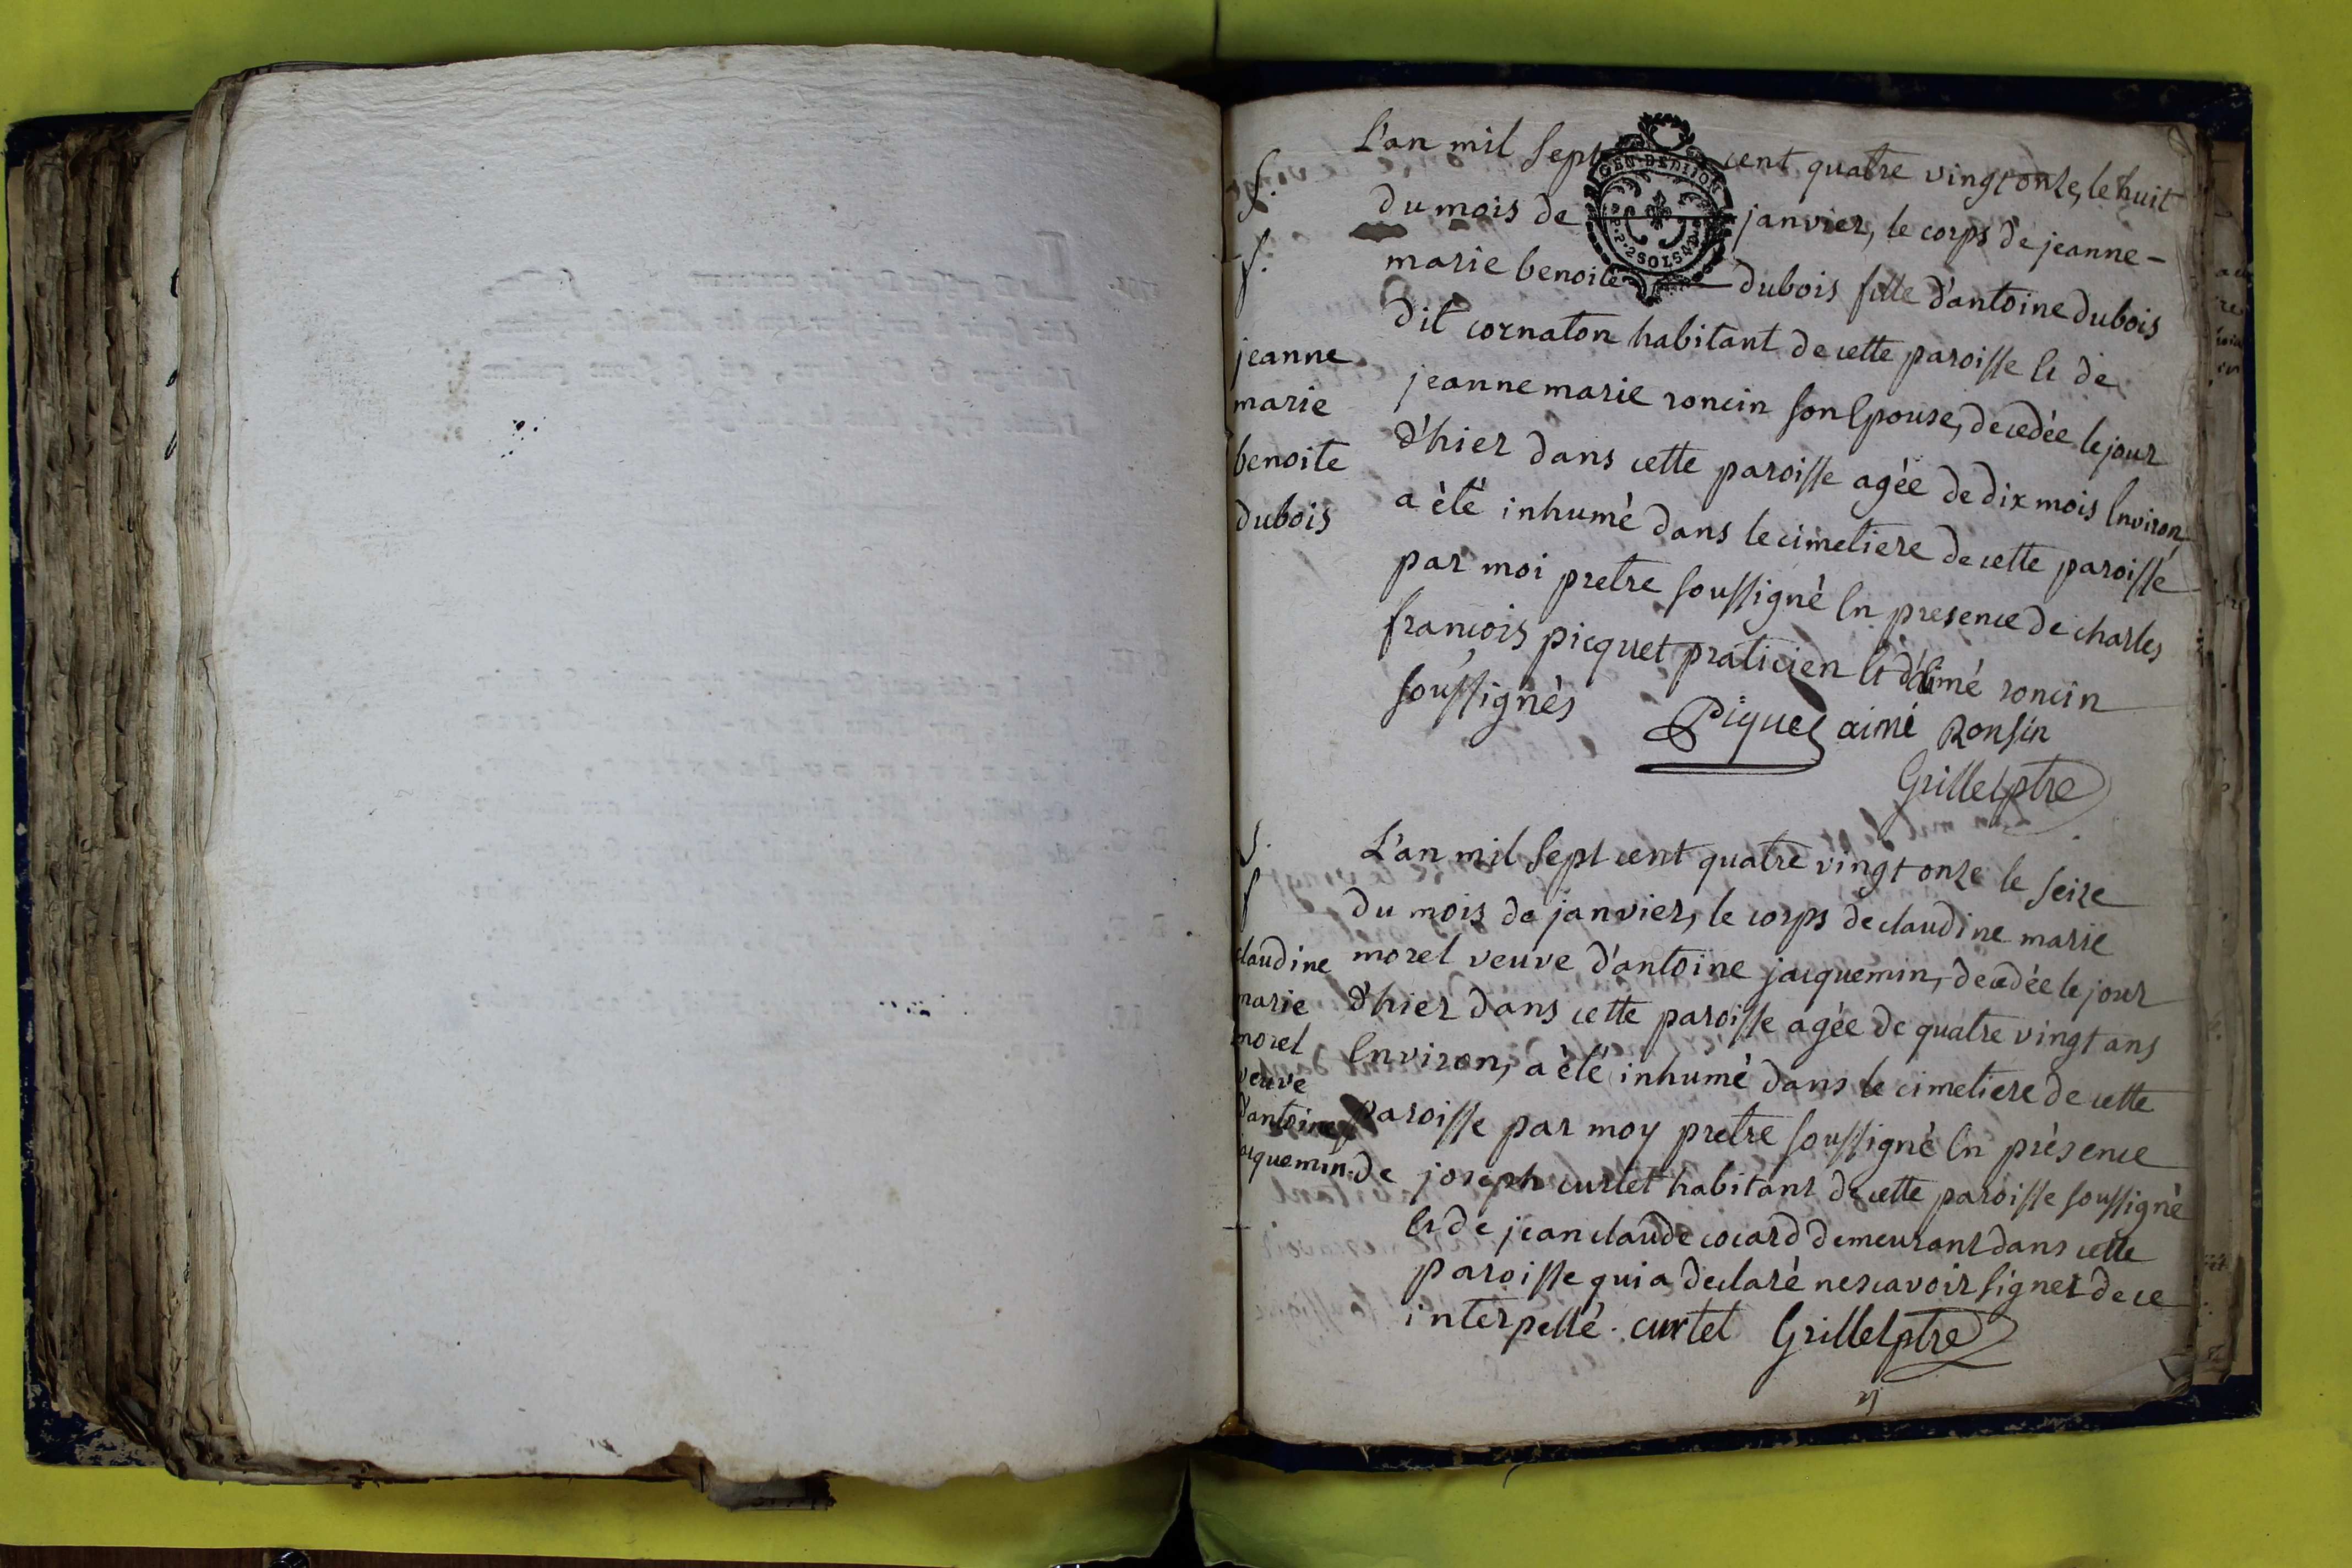 S.
f.
jeanne
marie
benoite
dubois
L'an mil sept cent quatre vingt onze, le huit
du mois de janvier, le corps de jeanne-
marie benoite dubois fille d'antoine dubois
dit cornaton habitant de cette paroisse et de
jeanne marie roncin son epouse, decedée le jour
d'hier dans cette paroisse agée de dix mois environ,
a èté inhumé dans le cimetiere de cette paroisse
par moi pretre soussigné en presence de charles
francois picquet praticien et d'aimé roncin
soussignés
Piquet aimé Ronsin
Grillet ptre
GEN. DE DIJON
2 SOLS
S.
f
claudine
marie
morel
veuve
d'antoine
jacquemin.
L'an mil sept cent quatre vingt onze le seize
du mois de janvier, le corps de claudine marie
morel veuve d'antoine jacquemin, decedée le jour
d'hier dans cette paroisse agée de quatre vingt ans
environ, a èté inhumé dans le cimetiere de cette
paroisse par moy pretre soussigné en présence
de joseph curtet habitant de cette paroisse soussigné
et de jean claude cocard demeurant dans cette
paroisse qui a declaré ne scavoir signer de ce
interpellé. curtet Grillet ptre